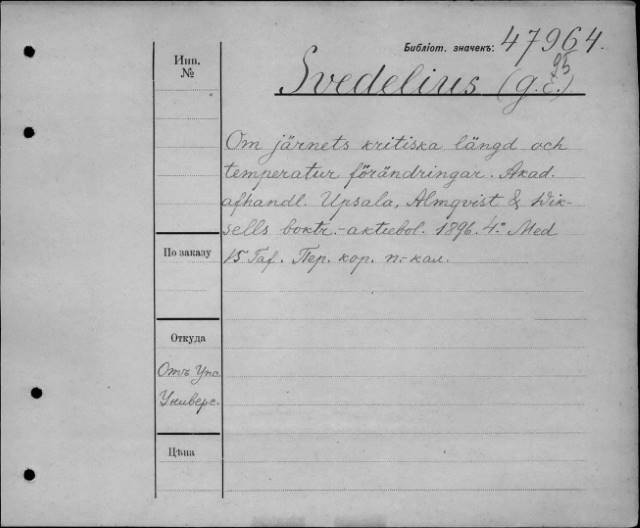 Библіот. значекъ: 47964.
95
Инв.
№
Svedelius (g. E.)
Om järnets kritiska längd och
temperatur förändringar. Akad.
afhandl. Upsala, Almqvist & Wik-
sells boktr.-aktiebol. 1896. 4:o Med
15 Taf. Пер. кор. п.-кал.
По заказу
Откуда
Отъ Упс.
Универс.
Цѣна